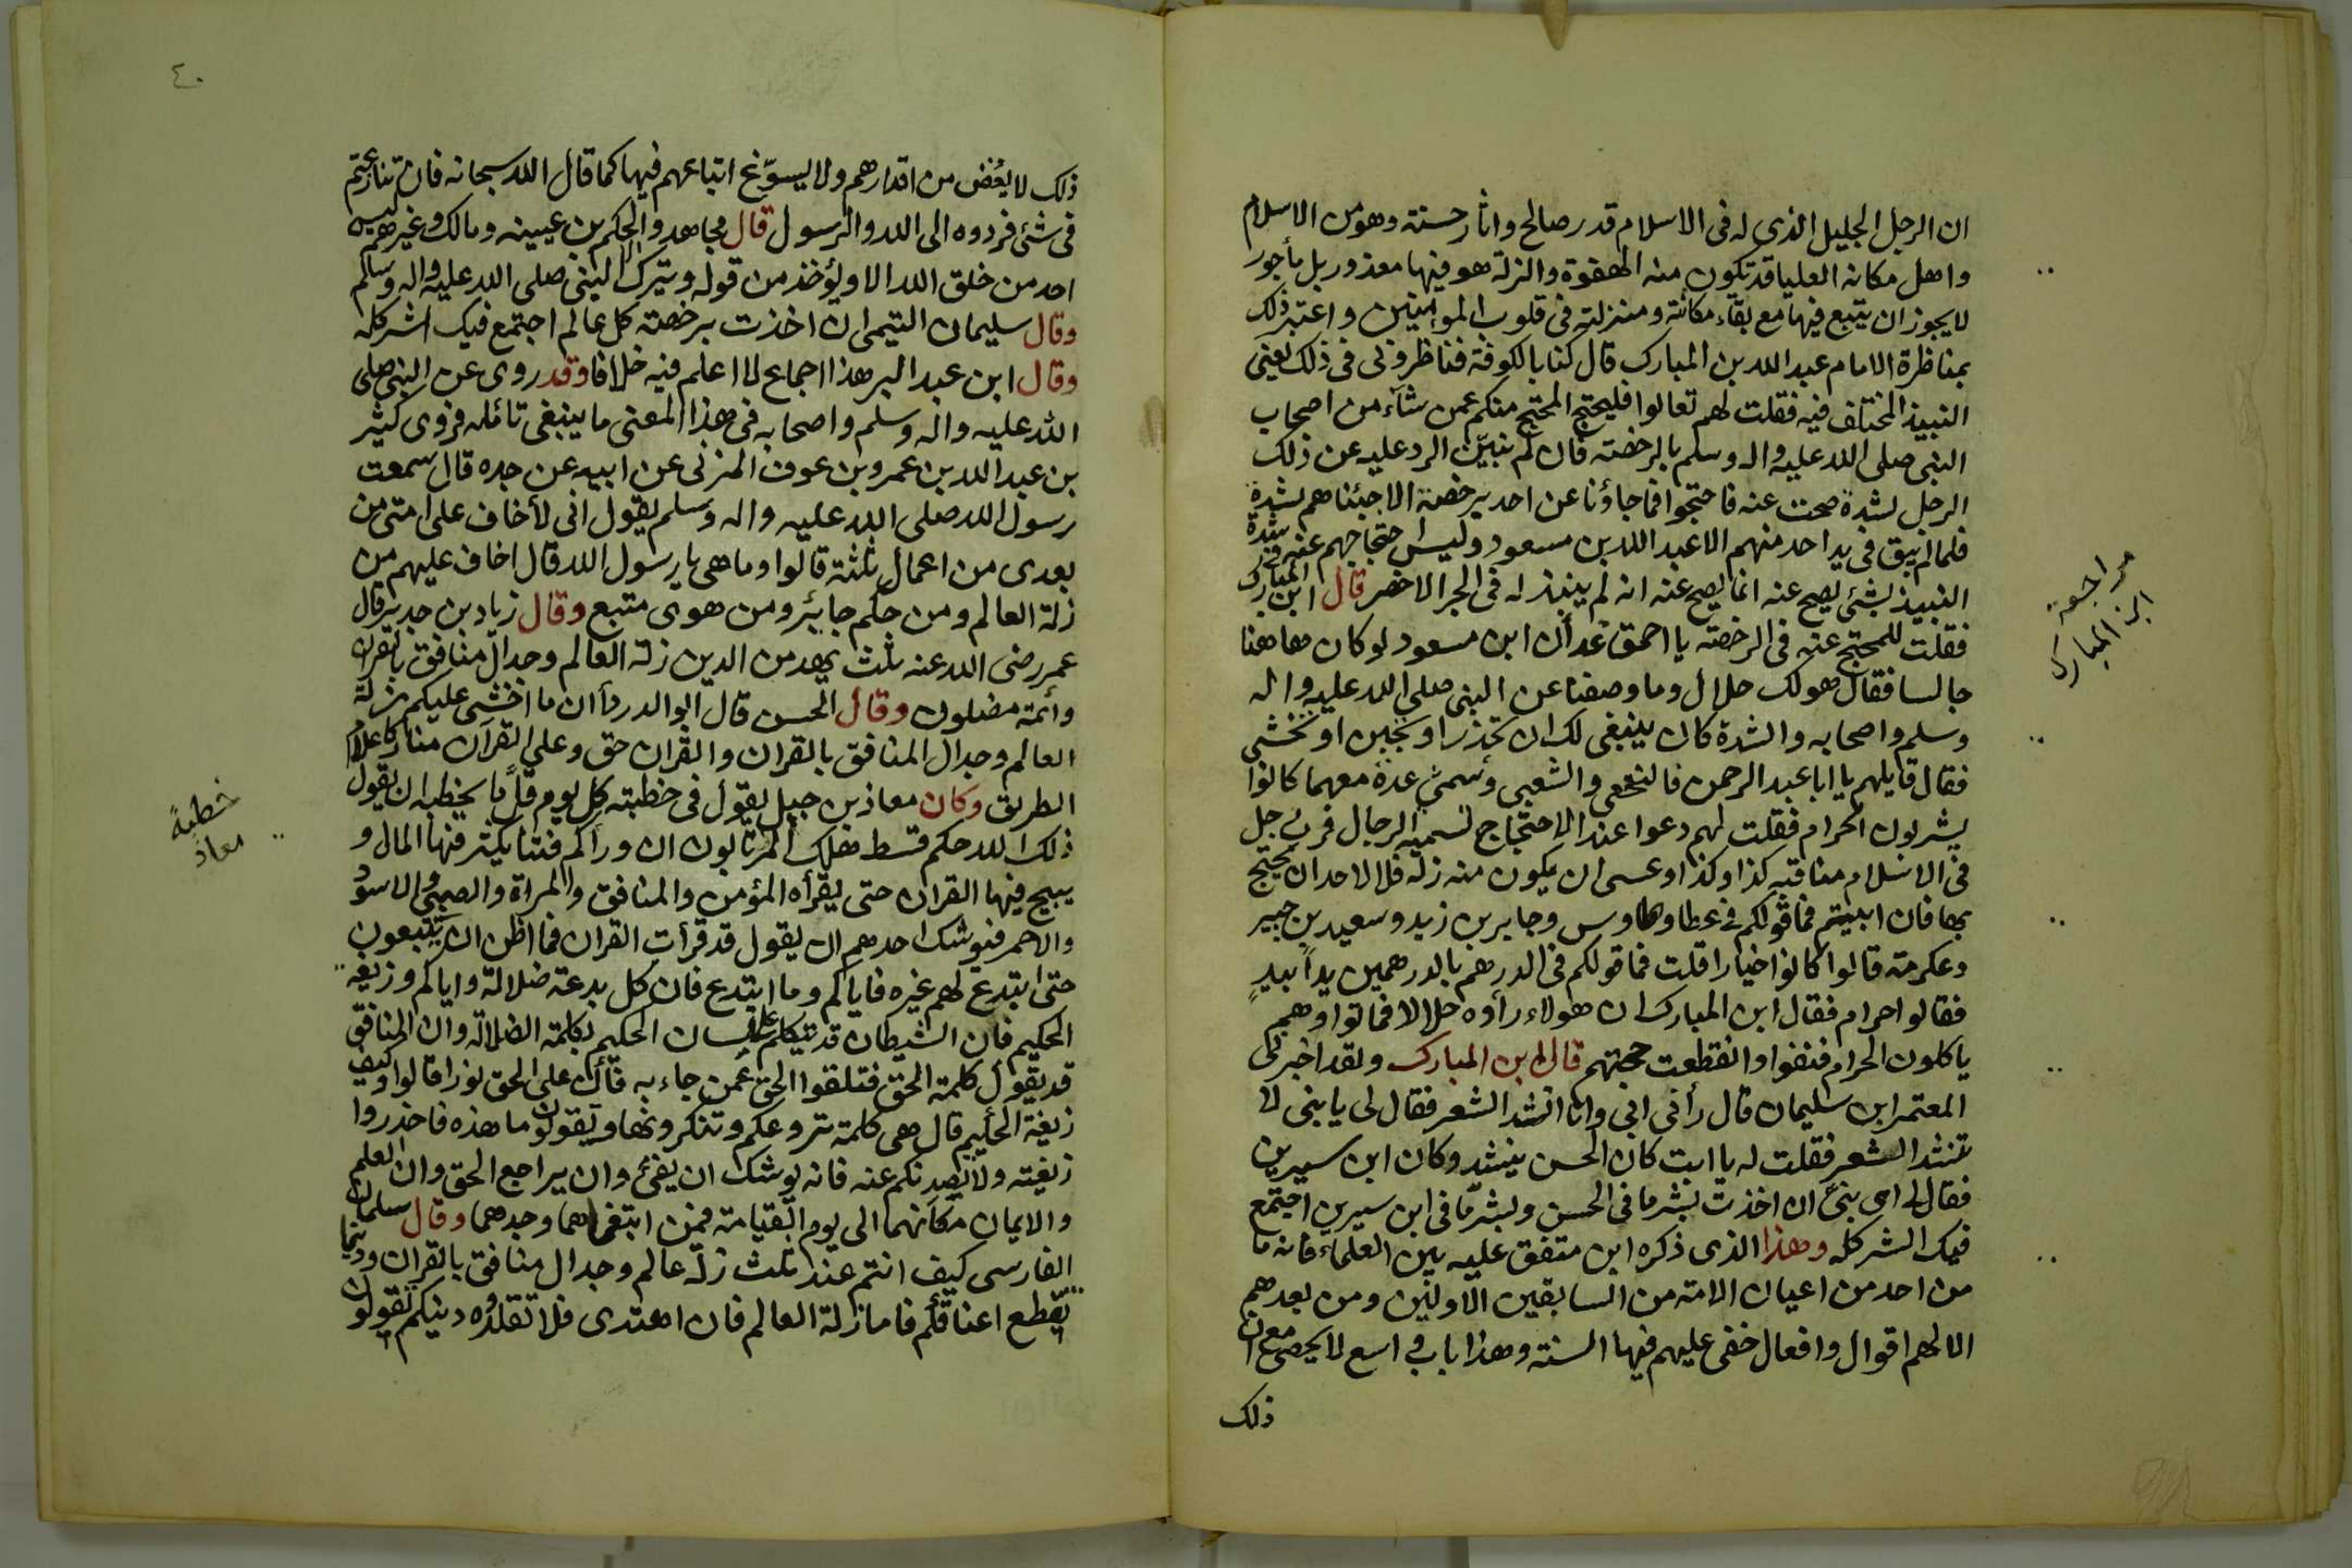 ان الرجل الجليل الذي له في الاسلام قدر صالح واثار حسنة وهو من الاسلام
واهل مكانه العليا قد تكون منه الهفوة والزلة هو فيها معذور بل مأجور
لا يجوز ان يتبع فيها مع بقاء مكانته ومنزلته في قلوب المؤمنين واعتبر ذلك
بمناظرة الامام عبد الله بن المبارك قال كنا بالكوفة فناظروني في ذلك يعني
النبيذ المختلف فيه فقلت لهم تعالوا فليحتج المحتج منكم عمن شآء من اصحاب
النبي صلى الله عليه واله وسلم بالرخصة فان لم نبيّن الرد عليه عن ذلك
الرجل بشدة صحت عنه فاحتجوا فما جاؤنا عن احد برخصة الا جئناهم بشدة
فلما لم يبق في يد احد منهم الا عبد الله بن مسعود وليس احتجاجهم عنه في شدة
النبيذ بشئ يصح عنه انما يصح عنه انه لم ينبذ له في الجر الاخضر قال ابن المبارك
فقلت للمحتج عنه في الرخصة يا احمق عد أن ابن مسعود لو كان هاهنا
جالسا فقال هو لك حلال وما وصفنا عن النبي صلى الله عليه واله
وسلم واصحابه والشدة كان ينبغي لك ان تحذر او تجبن او تخشى
فقال قايلهم يا ابا عبد الرحمن فالنخعي والشعبي وسمى عدة معهما كانوا
يشربون الحرام فقلت لهم دعوا عند الاحتجاج تسمية الرجال فرب رجل
في الاسلام مناقبه كذا وكذا وعسى ان يكون منه زلة فلا لاحد ان يحتج
بها فان ابيتم فما قولكم في عطا وطاوس وجابر بن زيد وسعيد بن جبير
وعكرمة قالوا كانوا خيارا قلت فما قولكم في الدرهم بالدرهمين يداً بيدٍ
فقالوا حرام فقال ابن المبارك ان هولاء رأوه حلالا فماتوا وهم
ياكلون الحرام فنفوا وانقطعت حجتهم قال ابن المبارك ولقد اخبرني
المعتمر ابن سليمان قال رأني ابي وانا انشد الشعر فقال لي يا بني لا
تنشد الشعر فقلت له يا ابت كان الحسن ينشد وكان ابن سيرين
فقال لي اي بني ان اخذت بشر ما في الحسن وبشر ما في ابن سيرين اجتمع
فيك الشر كله وهذا الذي ذكره ابن متفق عليه بين العلماء فانه ما
من احد من اعيان الامة من السابقين الاولين ومن بعدهم
الا لهم اقوال وافعال خفي عليهم فيها السنة وهذا باب واسع لا يحصى مع ان
ذلك
مراجعة
ابن المبارك
٤٠
ذلك لا يغُض من اقدارهم ولا يسوّغ اتباعهم فيها كما قال الله سبحانه فان تنازعتم
في شئ فردوه الى الله والرسول قال مجاهد والحكم بن عيينه ومالك وغيرهم ليس
احد من خلق الله الا ويؤخذ من قوله ويترك الا النبي صلى الله عليه واله وسلم
وقال سليمان التيمي ان اخذت برخصة كل عالم اجتمع فيك الشر كله
وقال ابن عبد البر هذا اجماع لا اعلم فيه خلافا وقد روى عن النبي صلى
الله عليه واله وسلم واصحابه في هذا المعنى ما ينبغي تأمله فروى كثير
بن عبد الله بن عمرو بن عوف المزني عن ابيه عن جده قال سمعت
رسول الله صلى الله عليه واله وسلم يقول اني لأخاف على امتي من
بعدي من اعمال ثلثة قالوا وما هي يا رسول الله قال اخاف عليهم من
زلة العالم ومن حكم جائر ومن هوى متبع وقال زياد بن حدير قال
عمر رضي الله عنه ثلث يهدمن الدين زلة العالم وجدال منافق بالقران
وأئمة مضلون وقال الحسن قال ابو الدرداء ان ما اخشى عليكم زلة
العالم وجدال المنافق بالقران والقران حق وعلى القرآن منار كاعلام
الطريق وكان معاذ بن جبل يقول في خطبته كل يوم قلّ ما يخطيه ان يقول
ذلك الله حكم قسط هلك المرتابون ان ورأكم فتنا يكثر فيها المال و
يبيح فيها القران حتى يقرأه المؤمن والمنافق والمراة والصبي والاسود
والاحمر فيوشك احدهم ان يقول قد قرأت القران فما اظن ان يتبعون
حتى ابتدع لهم غيره فاياكم وما ابتدع فان كل بدعة ضلالة واياكم وزيغة
الحكيم فان الشيطان قد يتكلم على لسان الحكيم بكلمة الضلالة وان المنافق
قد يقول كلمة الحق فتلقوا الحق عمن جاء به فأن على الحق نورا قالوا وكيف
زيغة الحكيم قال هي كلمة تروعكم وتنكرونها وتقولون ما هذه فاحذروا
زيغته ولا تصدنكم عنه فانه يوشك ان يفئ وان يراجع الحق وان العلم
والايمان مكانهما الى يوم القيامة فمن ابتغاهما وجدهما وقال سلمان
الفارسي كيف انتم عند ثلث زلة عالم وجدال منافق بالقران ودنيا
تقطع اعناقكم فاما زلة العالم فان اهتدى فلا تقلدوه دينكم تقولون
خطبة
معاذ